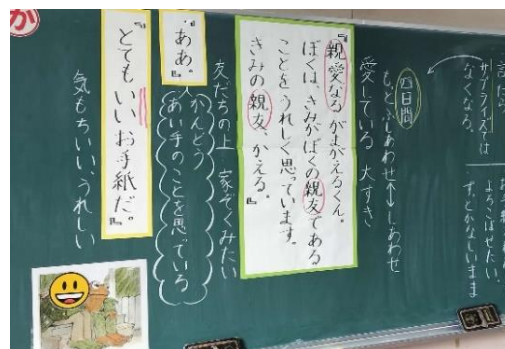 話したら
サプライズでは
なくなる。
よろこばせたい。
ずっとかなしいまま
四日間
もっとふしあわせ↔しあわせ
愛している 大すき
『親愛なるがまがえるくん。
ぼくは、きみがぼくの親友である
ことをうれしく思っています。
きみの親友、かえる。』
友だちの上 家ぞくみたい
「ああ。」
かんどう
あい手のことを思っている
『とてもいいお手紙だ。』
気もちいい、うれしい
か